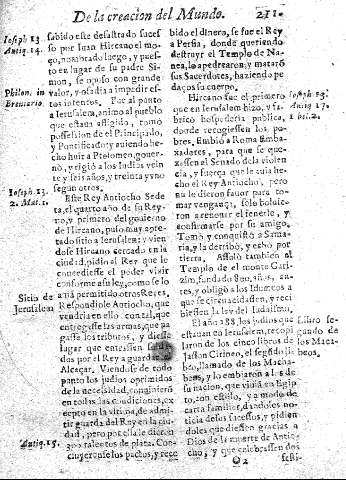 De la creacion del Mundo. 211.
Ioseph 13
Antiq. 14.
Philon. in
Breuiario.
Ioseph. 13.
2. Mac. 1.
Sitio de
Jerusalem
Antiq. 15.
sabido este desastrado suces
so por Iuan Hircano el mo-
ço, nombrado luego, y pues-
to en lugar de su padre Si-
mon, se opuso con grande
valor, y osadia a impedir es-
tos intentos. Par ar al punto
a Ierusalem, animo al pueblo
que estaua afligido, tomò
possession de el Principado,
y Pontificado: y auiendo he-
cho huir a Ptolomeo, gouer-
nò, y rigiò a los Iudios vein
te y seis años, y treinta y vno
segun otros.
Este Rey Antiocho Sede-
ta, el quarto año de su Rey-
no, y primero del gouierno
de Hircano, puso muy apre-
tado sitio a Ierusalem: y vien
dose Hircano cercado en la
ciudad, pidio al Rey que le
concediesse el poder viuir
conforme a su ley, como se lo
auia permitido otros Reyes.
Respondiole Antiocho, que
vendria en ello con tal, que
entregasse las armas, que pa
gasse los tributos, y diesse
lugar que entrassen
dos por el Rey a guardar el
Alcaçar. Viendose de todo
punto los iudios oprimidos
de la necessidad, conuinierō
en todas las condiciones, ex
cepto en la vltima, de admi-
tir guarda del Rey en la ciu-
dad, pero por ella le dieron
300. talentos de plata. Con-
cluyeronse los pactos, y reco
bido el dinero, se fue el Rey
a Persia, donde queriendo
destruyr el Templo de Na-
nea, lo apedrearon, y mataro
sus Sacerdotes, haziendo pe
daços su cuerpo.
Hircano fue el primero
que en Ierusalem hizo, y fa-
bricò hospederia publica,
donde recogiessen los po-
bres. Embiò a Roma Emba-
xadores, para que se que-
xassen al Senado de la violen
cia, y fuerça que le auia he-
cho el Rey Antiocho, pero
no le dieron fauor para to-
mar vengança, solo boluie-
ron a renouar el fenecle, y
confirmarse por su amigo.
Tomò y conquistò a Sama-
ria, y la derribò, y echò por
tierra. Assolò tambien al
Templo de el monte Gari-
zim, fundado 800. años, an-
tes, y obligò a los Idumeos a
que se circuncidassen, y reci
biessen la ley del Iudaismo.
El año 188. los judios que
estauan en Ierusalem, recopi
laron de los cinco libros de
Iasson Cirineo, el segundo li-
bro, llamado de los Macha-
beos, y lo embiaron a los de
su nacion, que viuia en Egip
to, con estilo, y a modo de
carta familiar, dandoles no-
ticia desus sucessos, y pidien
doles que diessen gracias a
Dios de la muerte de Antio
cho, y que celebrassen dos
Ioseph. 13.
Antiq. 17.
1. bel. 2.
Libro se-
gundo de
los Maca-
beos.
2
festi-